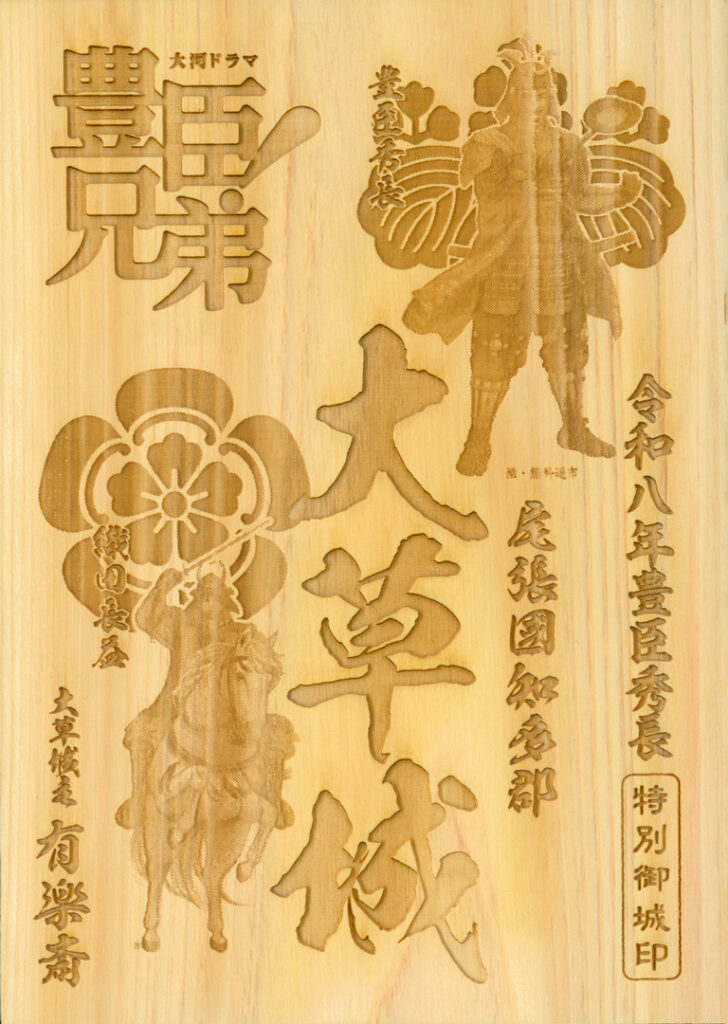 大河ドラマ
豊臣兄弟!
豊臣秀長
令和八年豊臣秀長
特別御城印
尾張國知多郡
大草城
織田長益
大草城主
有楽斎